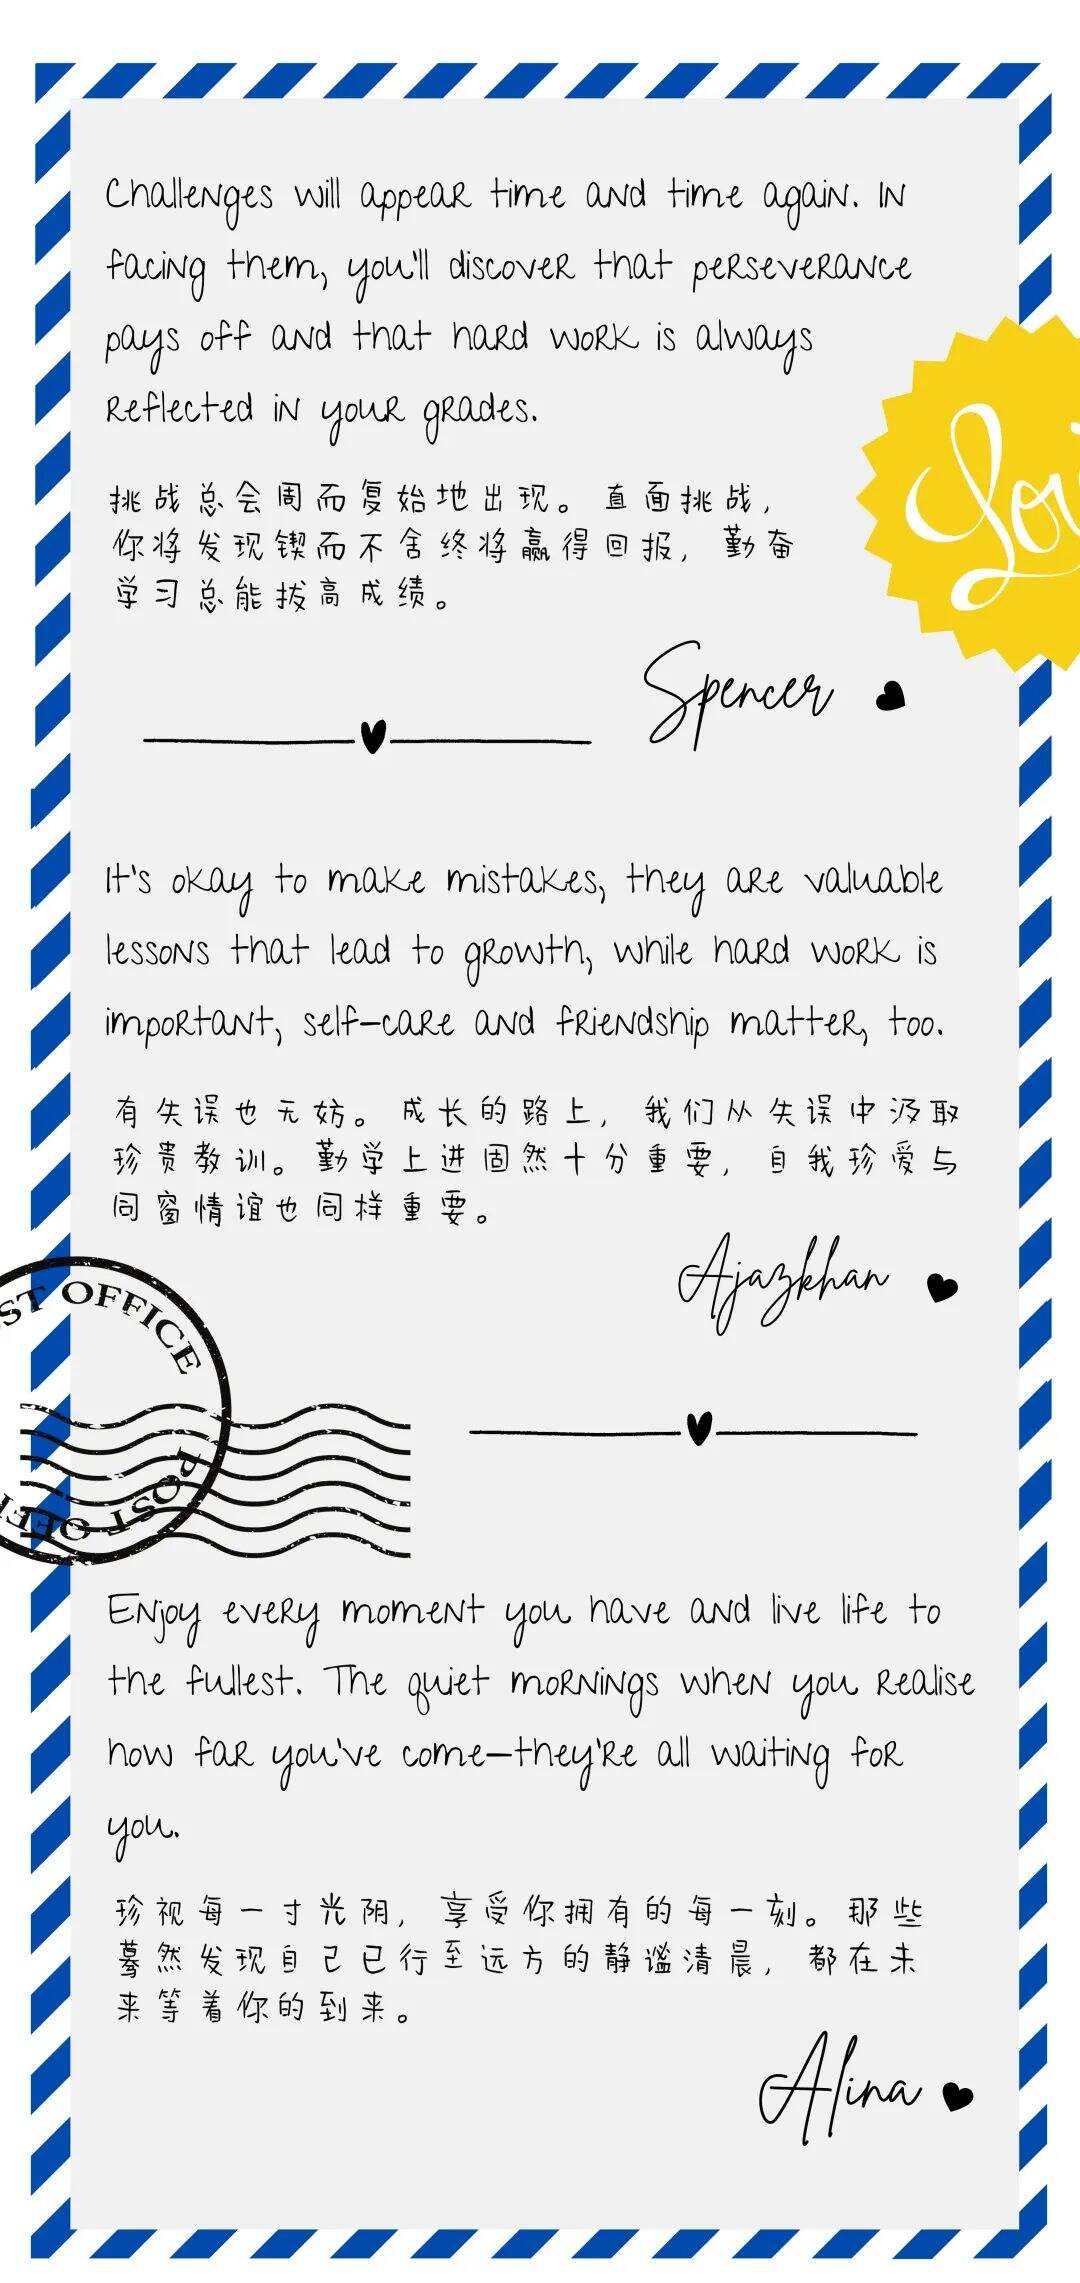 Challenges will appear time and time again. In
facing them, you'll discover that perseverance
pays off and that hard work is always
reflected in your grades.
挑战总会周而复始地出现。直面挑战，
你将发现锲而不舍终将赢得回报，勤奋
学习总能拔高成绩。
Spencer
It's okay to make mistakes, they are valuable
lessons that lead to growth, while hard work is
important, self-care and friendship matter, too.
有失误也无妨。成长的路上，我们从失误中汲取
珍贵教训。勤学上进固然十分重要，自我珍爱与
同窗情谊也同样重要。
Ajazkhan
ST OFFICE
POST OFFI
Enjoy every moment you have and live life to
the fullest. The quiet mornings when you realise
how far you've come—they're all waiting for
you.
珍视每一寸光阴，享受你拥有的每一刻。那些
蓦然发现自己已行至远方的静谧清晨，都在未
来等着你的到来。
Alina